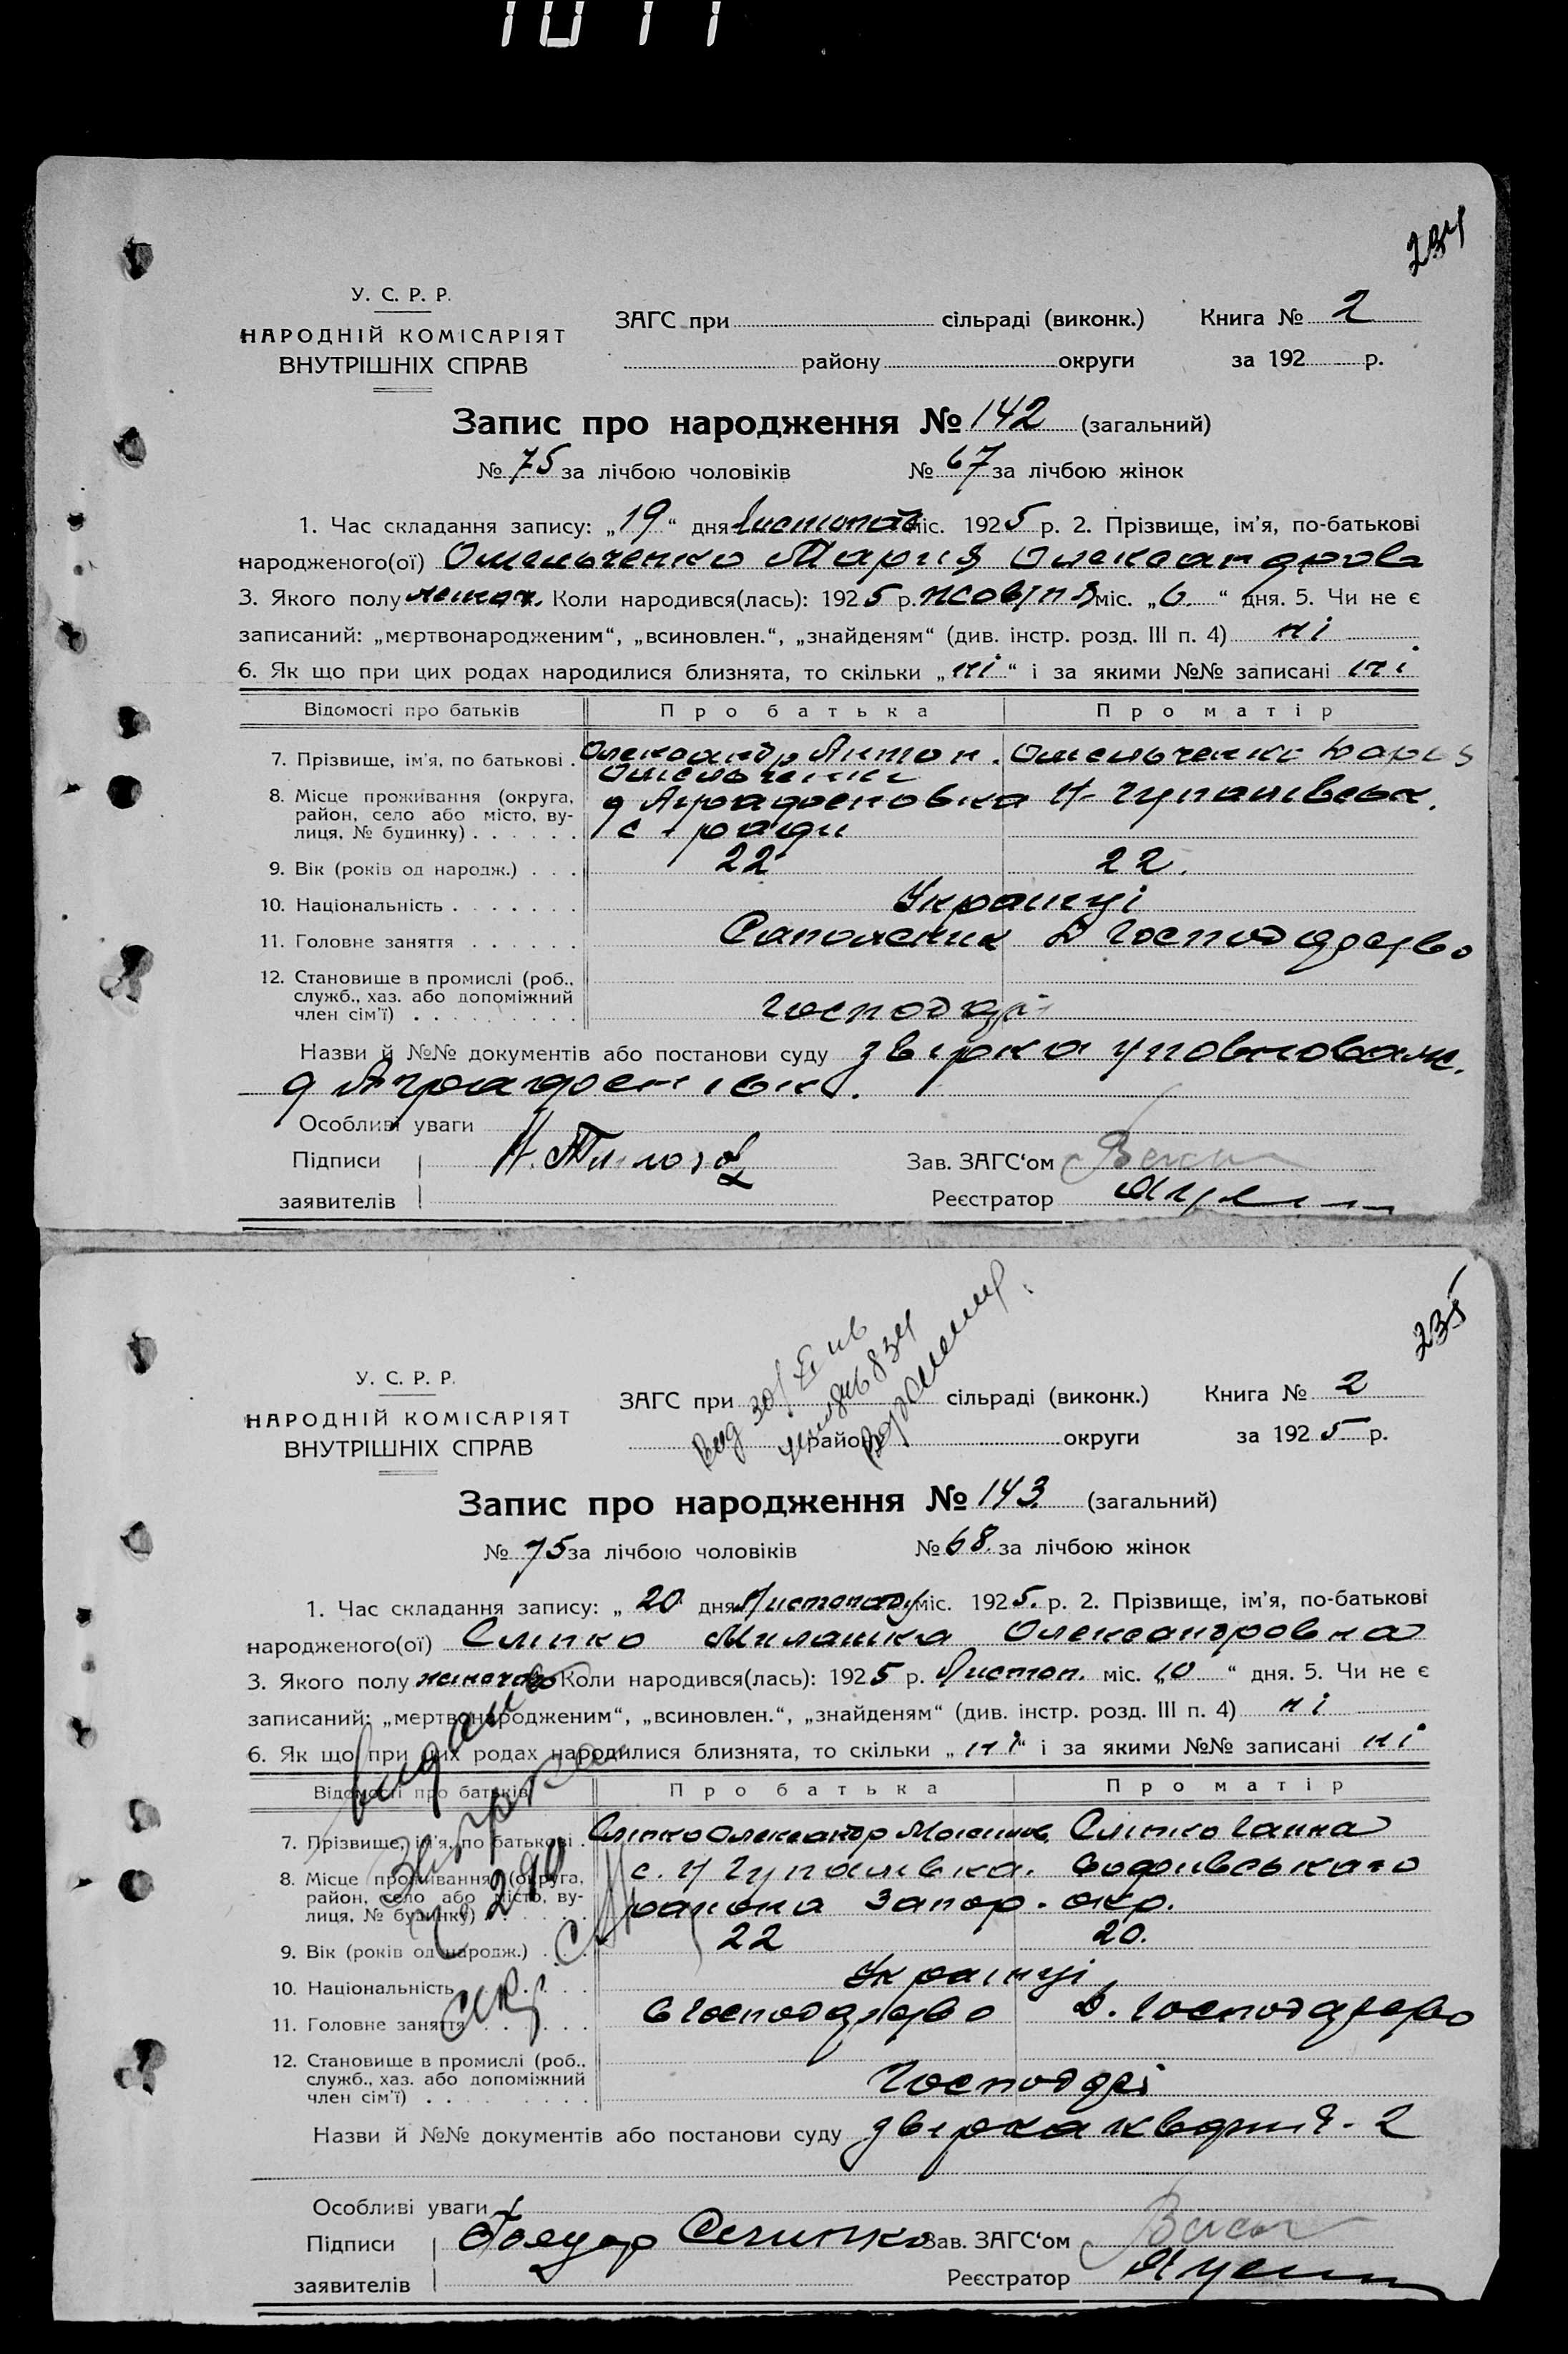 1011
234
У. С. Р. Р.
НАРОДНІЙ КОМІСАРІЯТ
ВНУТРІШНІХ СПРАВ
ЗАГС при сільраді (виконк.) Книга № 2
району округи за 192 р.
Запис про народження № 142 (загальний)
№ 75 за лічбою чоловіків № 67 за лічбою жінок
1. Час складання запису: „19“ дня Листопад міс. 1925 р. 2. Прізвище, ім'я, по-батькові
народженого(ої) Омельченко Мария Олександров
3. Якого полу жіноч. Коли народився(лась): 1925 р. жовтня міс. „6“ дня. 5. Чи не є
записаний: „мертвонародженим“, „всиновлен.“, „знайденям“ (див. інстр. розд. III п. 4) ні
6. Як що при цих родах народилися близнята, то скільки „ні“ і за якими №№ записані ні
Відомості про батьків Про батька Про матір
7. Прізвище, ім'я, по батькові . Олександр Антон. Омельченко Дарія
Омельченко
8. Місце проживання (округа, Н-Чупалівськ.
район, село або місто, ву-
лиця, № будинку) . . . . . . с-ради
9. Вік (років од народж.) . . . 22 22.
10. Національність . . . . . . . Українці
11. Головне заняття . . . . . . Сапожник Д Господарство
12. Становище в промислі (роб.,
служб., хаз. або допоміжний
член сім'ї) . . . . . . . . . Господарі
Назви й №№ документів або постанови суду звірка уповноваж.
Особливі уваги
Підписи Зав. ЗАГС'ом
заявителів Реєстратор
235
У. С. Р. Р.
НАРОДНІЙ КОМІСАРІЯТ
ВНУТРІШНІХ СПРАВ
ЗАГС при сільраді (виконк.) Книга № 2
району округи за 1925 р.
Запис про народження № 143 (загальний)
№ 75 за лічбою чоловіків № 68 за лічбою жінок
1. Час складання запису: „20 дня Листопаду міс. 1925. р. 2. Прізвище, ім'я, по-батькові
народженого(ої) Сліпко Милашка Олександровна
3. Якого полу жіночого Коли народився(лась): 1925 р. Листоп. міс. „10“ дня. 5. Чи не є
записаний: „мертвонародженим“, „всиновлен.“, „знайденям“ (див. інстр. розд. III п. 4) ні
6. Як що при цих родах народилися близнята, то скільки „ні“ і за якими №№ записані ні
Відомості про батьків Про батька Про матір
7. Прізвище, ім'я, по батькові . Сліпко Олександр Сліпко Ганна
8. Місце проживання (округа, с. Н Чупалівка. Софіївського
район, село або місто, ву- района Запор. окр.
лиця, № будинку) . . . . . .
9. Вік (років од народж.) . . . 22 20.
10. Національність . . . . . . . Українці
11. Головне заняття . . . . . . Господарство Д. Господарство
12. Становище в промислі (роб.,
служб., хаз. або допоміжний
член сім'ї) . . . . . . . . . Господарі
Назви й №№ документів або постанови суду звірка
Особливі уваги
Підписи Зав. ЗАГС'ом
заявителів Реєстратор